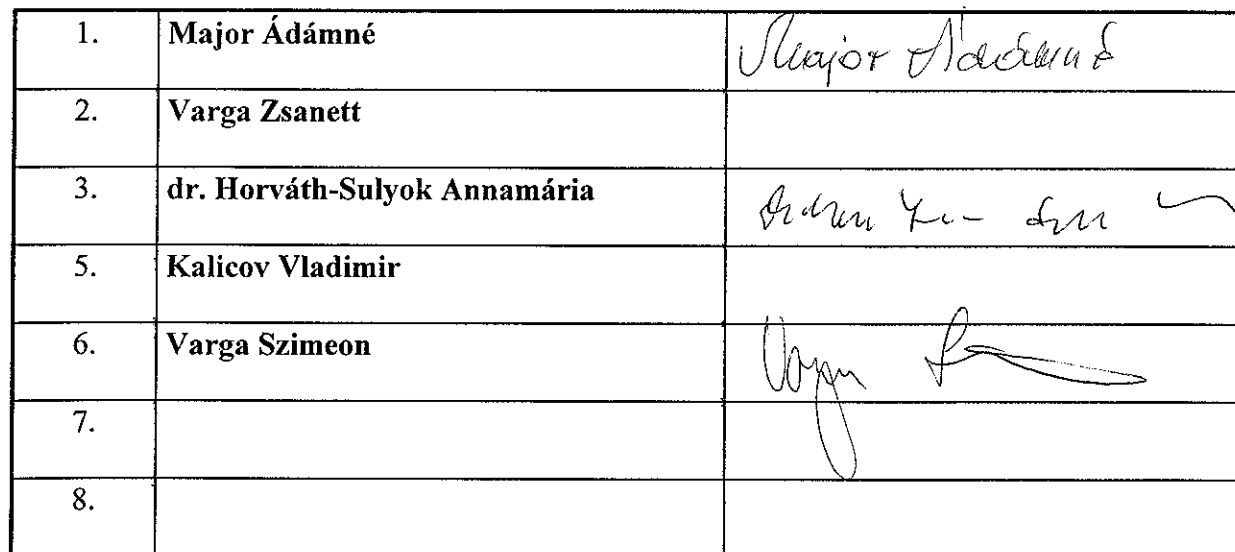 1. Major Ádámné Major Ádámné
2. Varga Zsanett
3. dr. Horváth-Sulyok Annamária
5. Kalicov Vladimir
6. Varga Szimeon Varga
7.
8.